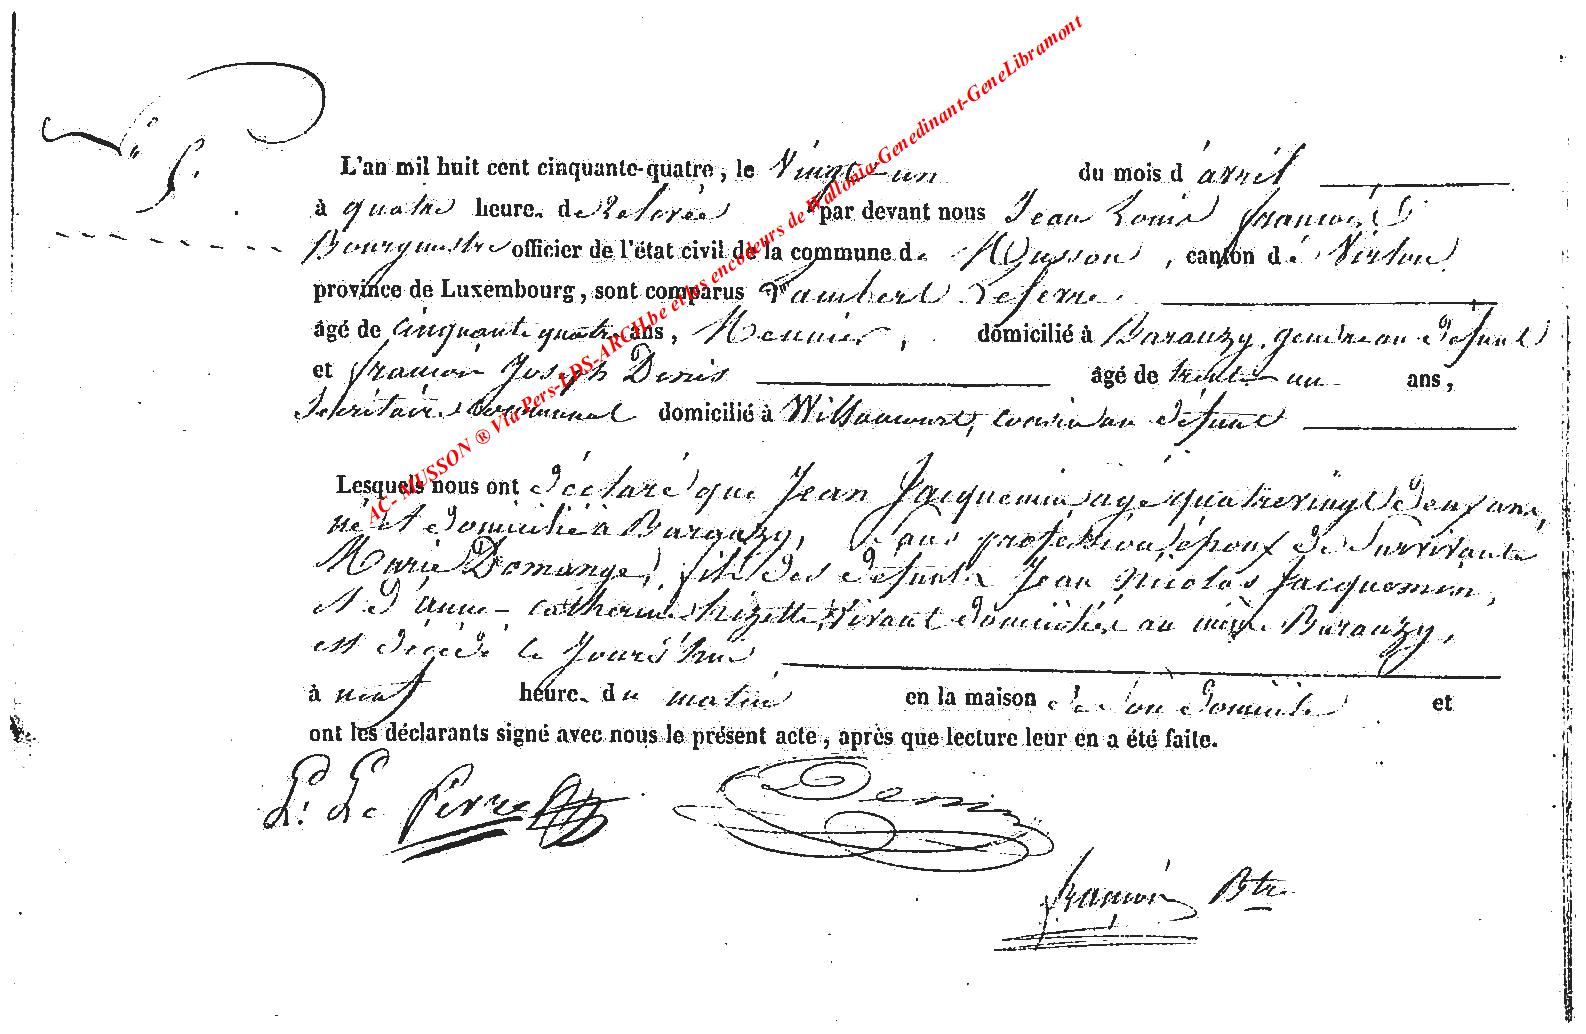 N° 5.
L'an mil huit cent cinquante-quatre, le Vingt-un du mois d'avril
à quatre heure. de Relevée par devant nous Jean Louis François
Bourgmestre officier de l'état civil de la commune de Musson, canton de Virton
province de Luxembourg, sont comparus Lambert Leferre
âgé de cinquante quatre ans, Meunier, domicilié à Baranzy, gendre au défunt
et françois Joseph Denis âgé de trente-un ans,
Secrétaire communal domicilié à Willancourt, cousin au défunt
Lesquels nous ont déclaré que Jean Jacquemin agé quatrevingt deux ans,
né et domicilié à Baranzy, Sans profession, époux de Survivante
Marie Domange, fils des défunts Jean Nicolas Jacquemin,
et d'anne-catherine Vivant domiciliés au même Baranzy,
est décédé le Jourd'hui
à neuf heure. du matin en la maison de Son domicile et
ont les déclarants signé avec nous le présent acte, après que lecture leur en a été faite.
L. Le ferre Denis
françois Btre
AC- MUSSON ® Via Pers-LDS-ARCH.be et les encodeurs de Wallonia-Genedinant-GeneLibramont